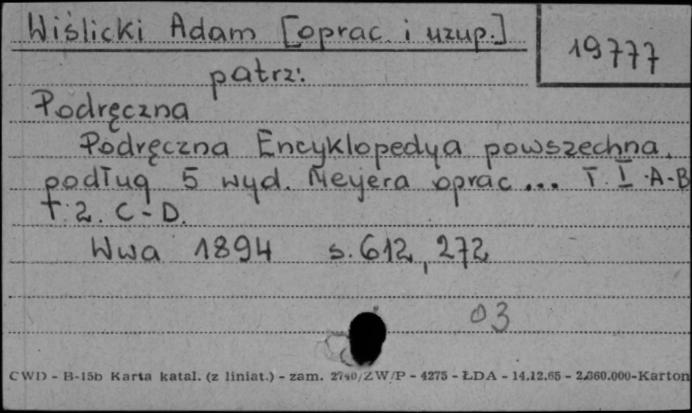 Wiślicki Adam [oprac. i uzup.]
19777
patrz:
Podręczna
Podręczna Encyklopedya powszechna,
podług 5 wyd. Meyera oprac... T. I. A-B
t. 2. C-D.
Wwa 1894 s. 612, 272
03
CWD - B-15b Karta katal. (z liniat.) - zam. 2740/ZW/P - 4275 - ŁDA - 14.12.65 - 2.360.000-Karton